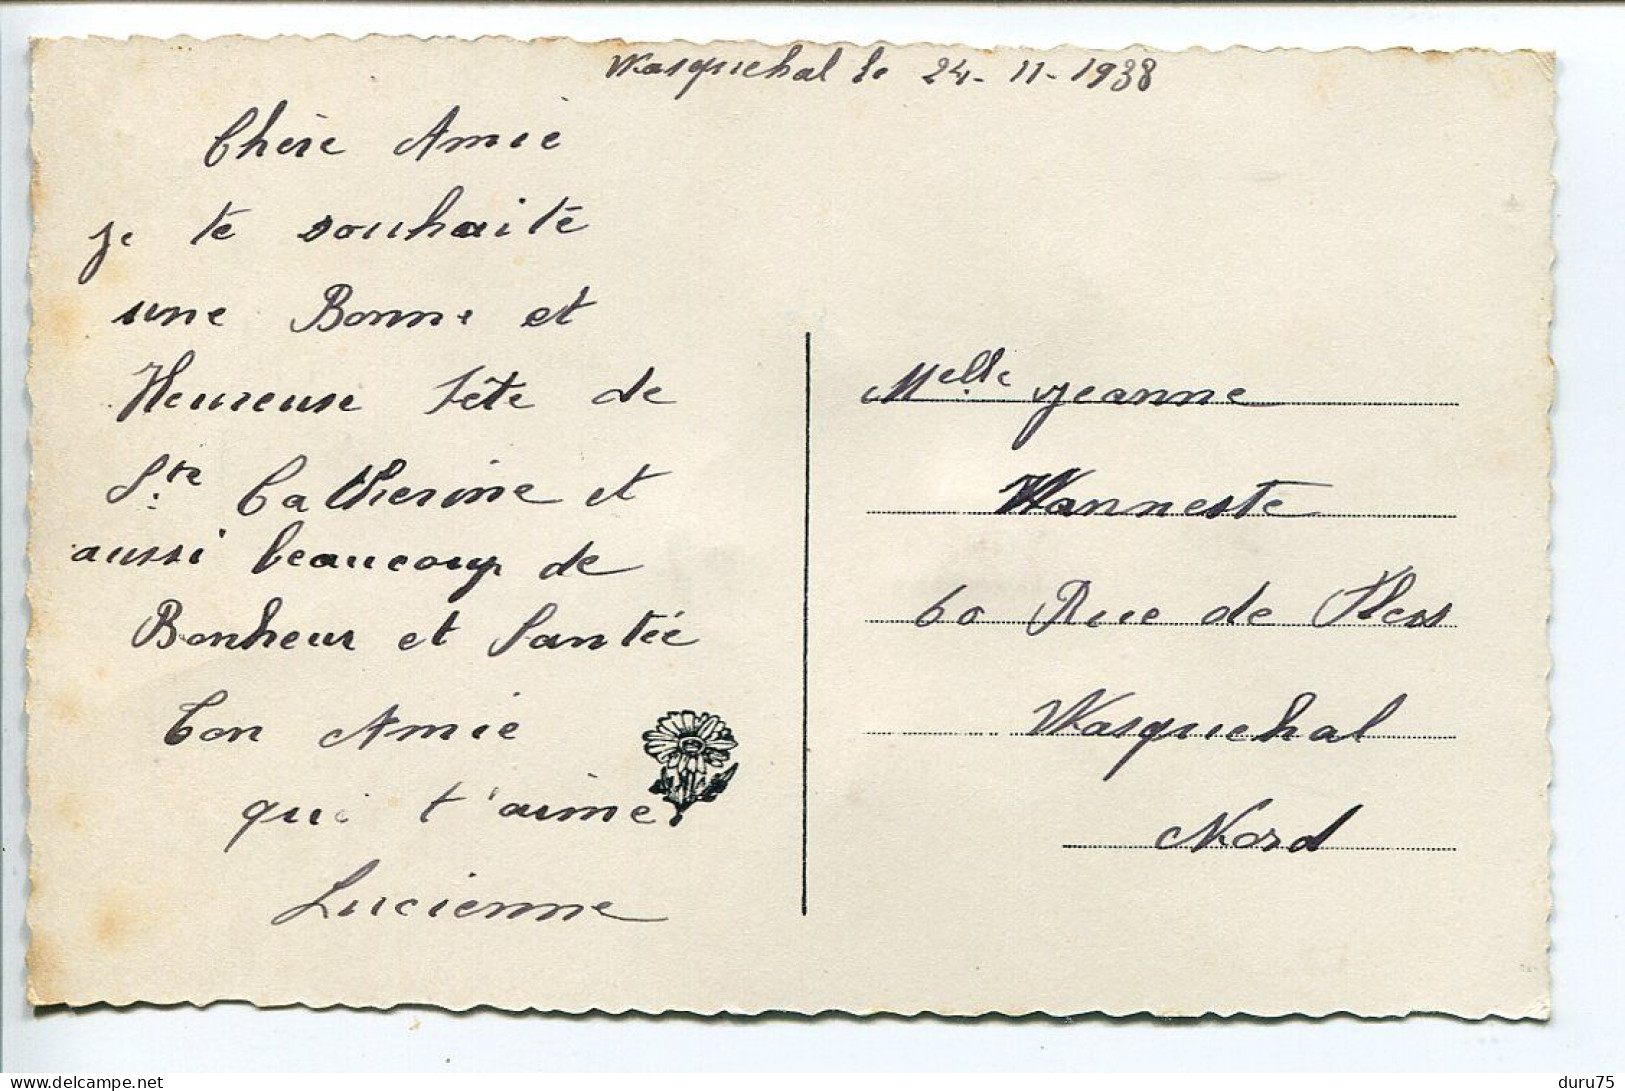 Wasquehal le 24-11-1938
Chère Amie
je te souhaite
une Bonne et
Heureuse fête de
Ste Catherine et
aussi beaucoup de
Bonheur et Santée
Ton Amie
qui t'aime
Lucienne
Melle Jeanne
Wanneste
60 Rue de
Wasquehal
Nord
delcampe.net
duru75